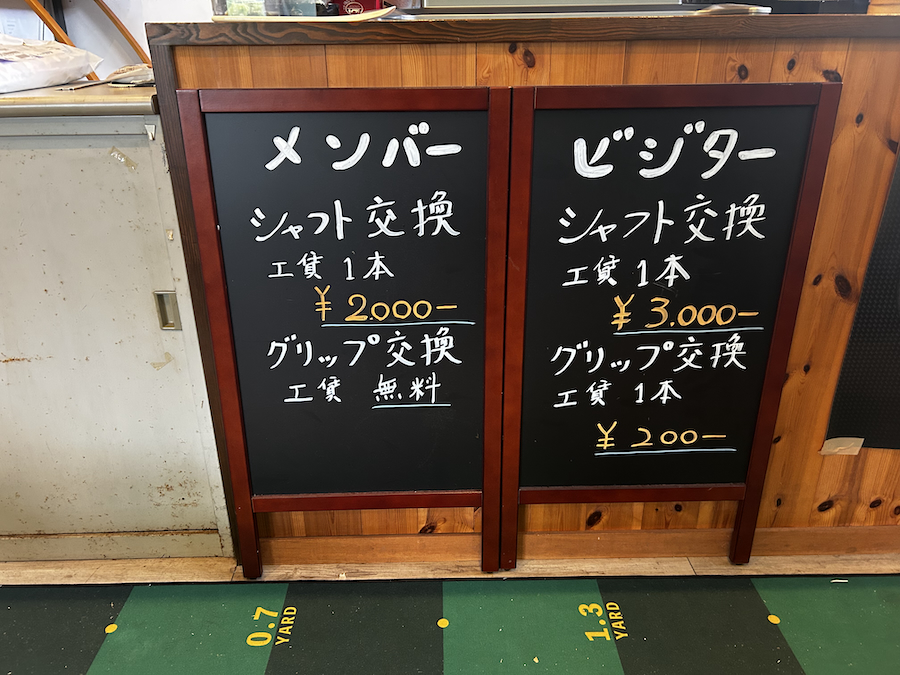 メンバー
シャフト交換
工賃 1本
¥2.000-
グリップ交換
工賃 無料
ビジター
シャフト交換
工賃 1本
¥3.000-
グリップ交換
工賃 1本
¥200-
0.7 YARD
1.3 YARD